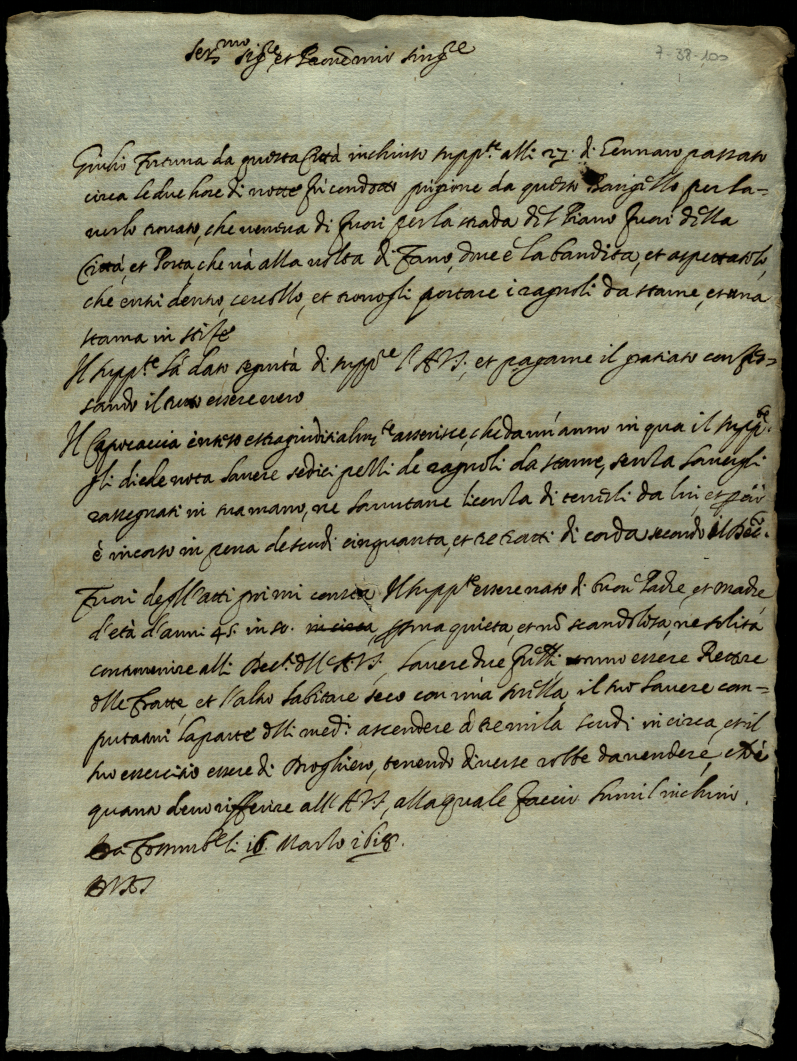 Ser.mo Sig.re et Pron̄e mio sing.re
7-38-100
Giulio Fortuna da questa Città inchinto supp.te alli 27. di Gennaro passato
circa le due hore di notte fù condotto prigione da questo Barigello per ha=
verlo trovato, che veniva di fuori per la strada del Piano fuori della
Città, et Porta, che và alla volta di Fano, dove è la bandita, et aspettatolo,
che entri dentro, cercollo, et trovogli portare i ragnoli da starne, et una
starna in
Il supp.te hà dato sigurtà di supp.re l'A.V.S., et pagarne il gratiato confes=
sando il tutto essere vero
Il Capocaccia inteso estragiuditialm.te asserisce, che da un'anno in qua il supp.te
gli diede nota havere sedici pelli de ragnoli da starne, senza havergli
rassegnati in sua mano, ne havutane licenza di tenerli da lui, et però
è incorso in pena de scudi cinquanta, et tre tratti di corda secondo il Dec.
Fuori degl'atti poi mi consta Il supp.te essere nato di buon Padre, et madre
d'età d'anni 45 in 50. in circa, persona quieta, et nō scandolosa, ne solità
contravenire alli Decti dell'A.V.S., havere due fr̄elli uno essere Rettore
delle Fratte et l'altro habitare seco con una sorella, il suo havere com=
putatavi la parte delli med.i ascendere à tremila scudi in circa, et il
suo essercitio essere di Droghiero, tenendo diverse robbe da vendere, ch'è
quanto devo rifferire all'A.V.S., alla quale faccio humil inchino.
Da Fossomb.e li 16. Marzo 1618.
D.V.A.S.